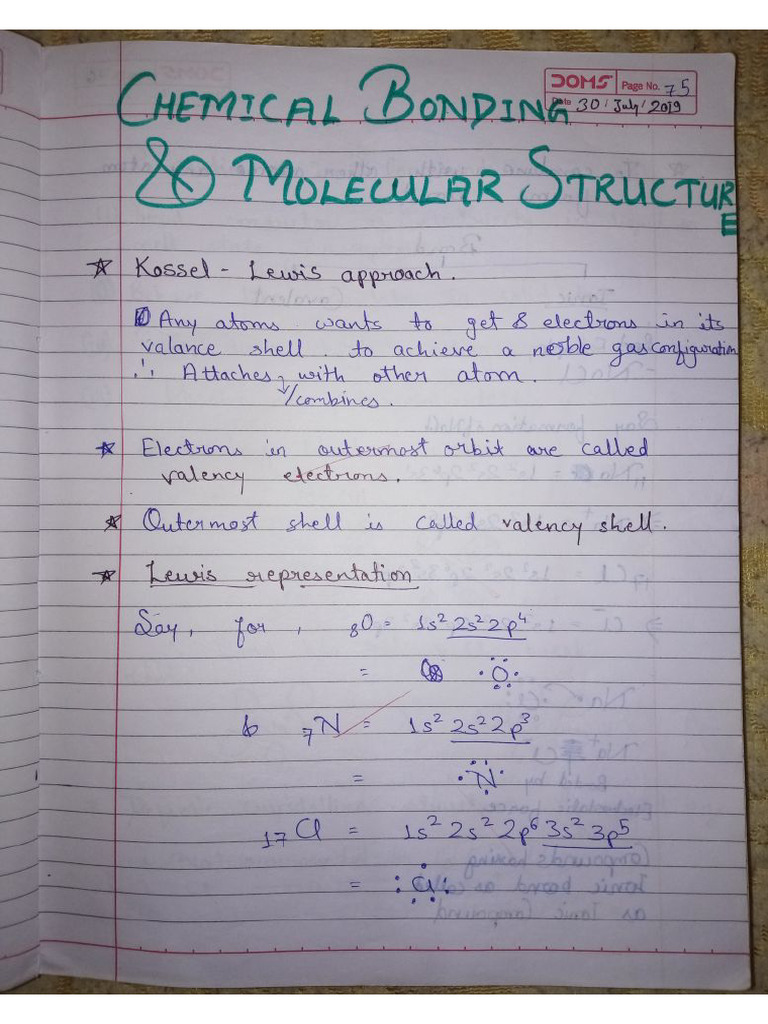 DOMS Page No. 75
Date 30/July/2019
CHEMICAL BONDING
& MOLECULAR STRUCTURE
☆ Kossel - Lewis approach.
Any atoms wants to get 8 electrons in its
valance shell. to achieve a noble gas configuration
∴ Attaches with other atom.
↓/combines.
☆ Electrons in outermost orbit are called
valency electrons.
☆ Outermost shell is called valency shell.
☆ Lewis representation
Say, for, ₈O = 1s² 2s² 2p⁴
= O
₇N = 1s² 2s² 2p³
= N
₁₇Cl = 1s² 2s² 2p⁶ 3s² 3p⁵
= Cl